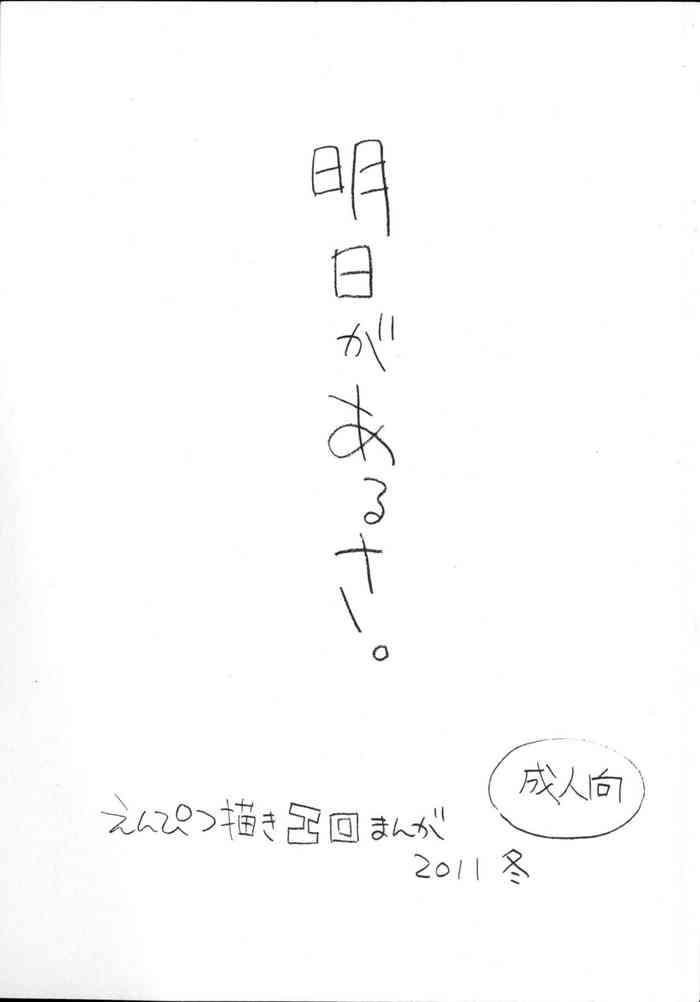 明日があるさ。
成人向
えんぴつ描き 回まんが
2011 冬